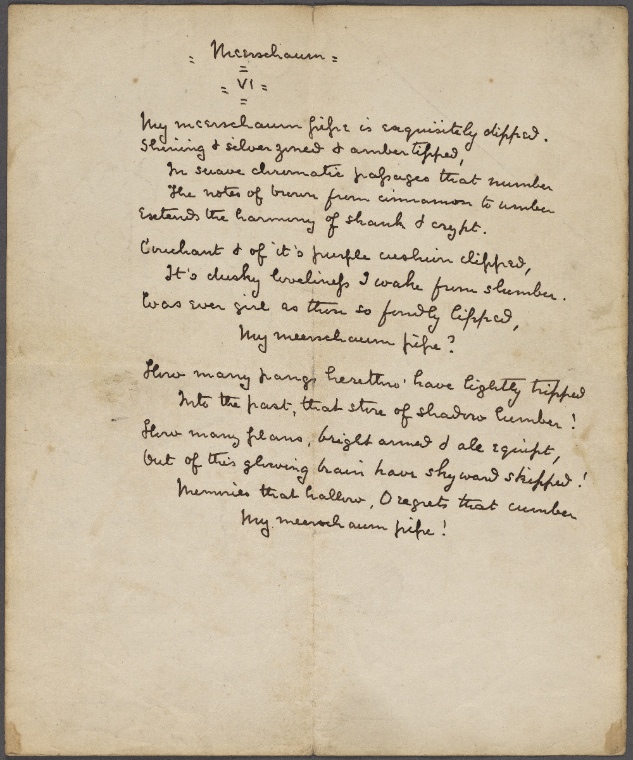 = Meerschaum =
=
= VI =
=
My meerschaum pipe is exquisitely dipped.
Shining & silver zoned & amber tipped,
In suave chromatic passages that number
The notes of brown from cinnamon to umber
Extends the harmony of shank & crypt.
Couchant & of it's purple cushion clipped,
It's dusky loveliness I wake from slumber.
Was ever girl as thou so fondly lipped,
My meerschaum pipe?
How many pangs herethro' have lightly tripped
Into the past, that store of shadow lumber!
How many plans, bright armed & all equipt,
Out of this glowing brain have skyward skipped!
Memories that hallow, O regrets that cumber
My meerschaum pipe!